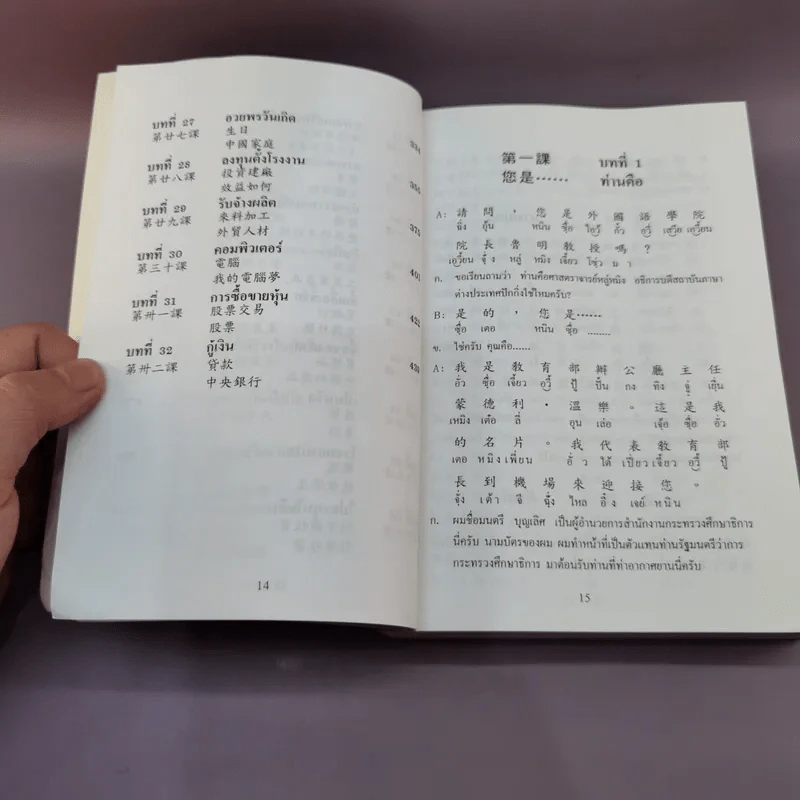 บทที่ 27 อวยพรวันเกิด
第廿七課 生日
中國家庭 334
บทที่ 28 ลงทุนตั้งโรงงาน
第廿八課 投資建廠
效益如何
บทที่ 29 รับจ้างผลิต
第廿九課 來料加工
外貿人材
บทที่ 30 คอมพิวเตอร์
第三十課 電腦
我的電腦夢 401
บทที่ 31 การซื้อขายหุ้น
第卅一課 股票交易
股票
บทที่ 32 กู้เงิน
第卅二課 貸款
中央銀行
14
第一課 บทที่ 1
您是…… ท่านคือ
A: 請問，您是外國語學院
ฉิ่ง อุ้น หนิน ซื่อ ไอว้ กั๋ว อวี่ เสวีย เอวี้ยน
院長魯明教授嗎？
เอวี้ยน จั่ง หลู่ หมิง เจี้ยว โซ่ว มา
ก. ขอเรียนถามว่า ท่านคือศาสตราจารย์หลู่หมิง อธิการบดีสถาบันภาษา
ต่างประเทศปักกิ่งใช่ไหมครับ?
B: 是的，您是……
ซื่อ เตอ หนิน ซื่อ ........
ข. ใช่ครับ คุณคือ.....
A: 我是教育部辦公廳主任
อั่ว ซื่อ เจี้ยว อวี้ ปู้ ปั้น กง ทิง จู่ เยิ่น
蒙德利·溫樂。這是我
เหมิง เต๋อ ลี่ อุน เล่อ เจ้อ ซื่อ อั่ว
的名片。我代表教育部
เตอ หมิง เพี่ยน อั่ว ไต้ เปี่ยว เจี้ยว อวี้ ปู้
長到機場來迎接您。
จั่ง เต้า จี ฉั่ง ไหล อิ๋ง เจย์ หนิน
ก. ผมชื่อมนตรี บุญเลิศ เป็นผู้อำนวยการสำนักงานกระทรวงศึกษาธิการ
นี่ครับ นามบัตรของผม ผมทำหน้าที่เป็นตัวแทนท่านรัฐมนตรีว่าการ
กระทรวงศึกษาธิการ มาต้อนรับท่านที่ท่าอากาศยานนี่ครับ
15